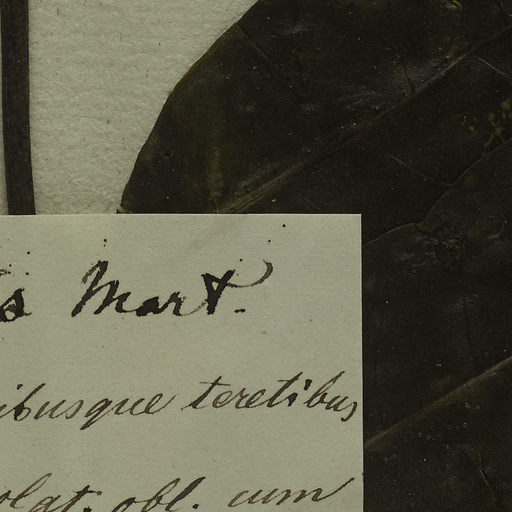 s Mart.
ibusque teretibus
olat. obl. cum